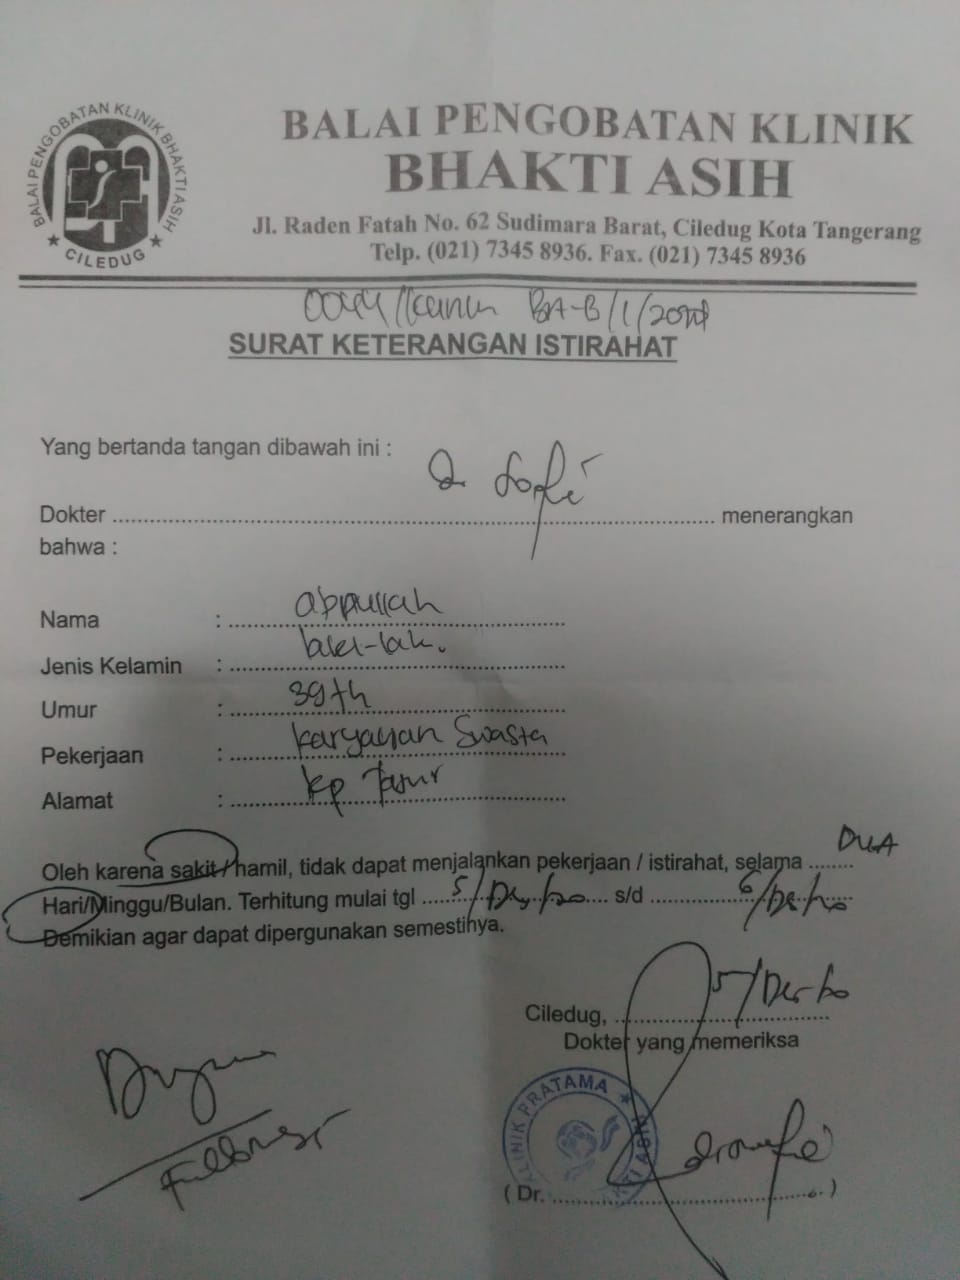 BALAI PENGOBATAN KLINIK BHAKTI ASIH
★ CILEDUG ★
BALAI PENGOBATAN KLINIK
BHAKTI ASIH
Jl. Raden Fatah No. 62 Sudimara Barat, Ciledug Kota Tangerang
Telp. (021) 7345 8936. Fax. (021) 7345 8936
SURAT KETERANGAN ISTIRAHAT
Yang bertanda tangan dibawah ini :
Dokter ........ menerangkan
bahwa :
Nama : Abdullah
Jenis Kelamin : laki-laki.
Umur : 39 th
Pekerjaan : karyawan Swasta
Alamat : kp
Oleh karena sakit / hamil, tidak dapat menjalankan pekerjaan / istirahat, selama DUA
Hari/Minggu/Bulan. Terhitung mulai tgl 5/Des/20 s/d 6/Des/20
Demikian agar dapat dipergunakan semestinya.
Ciledug, 5/Des/20
Dokter yang memeriksa
KLINIK PRATAMA ★
(Dr. ........ )